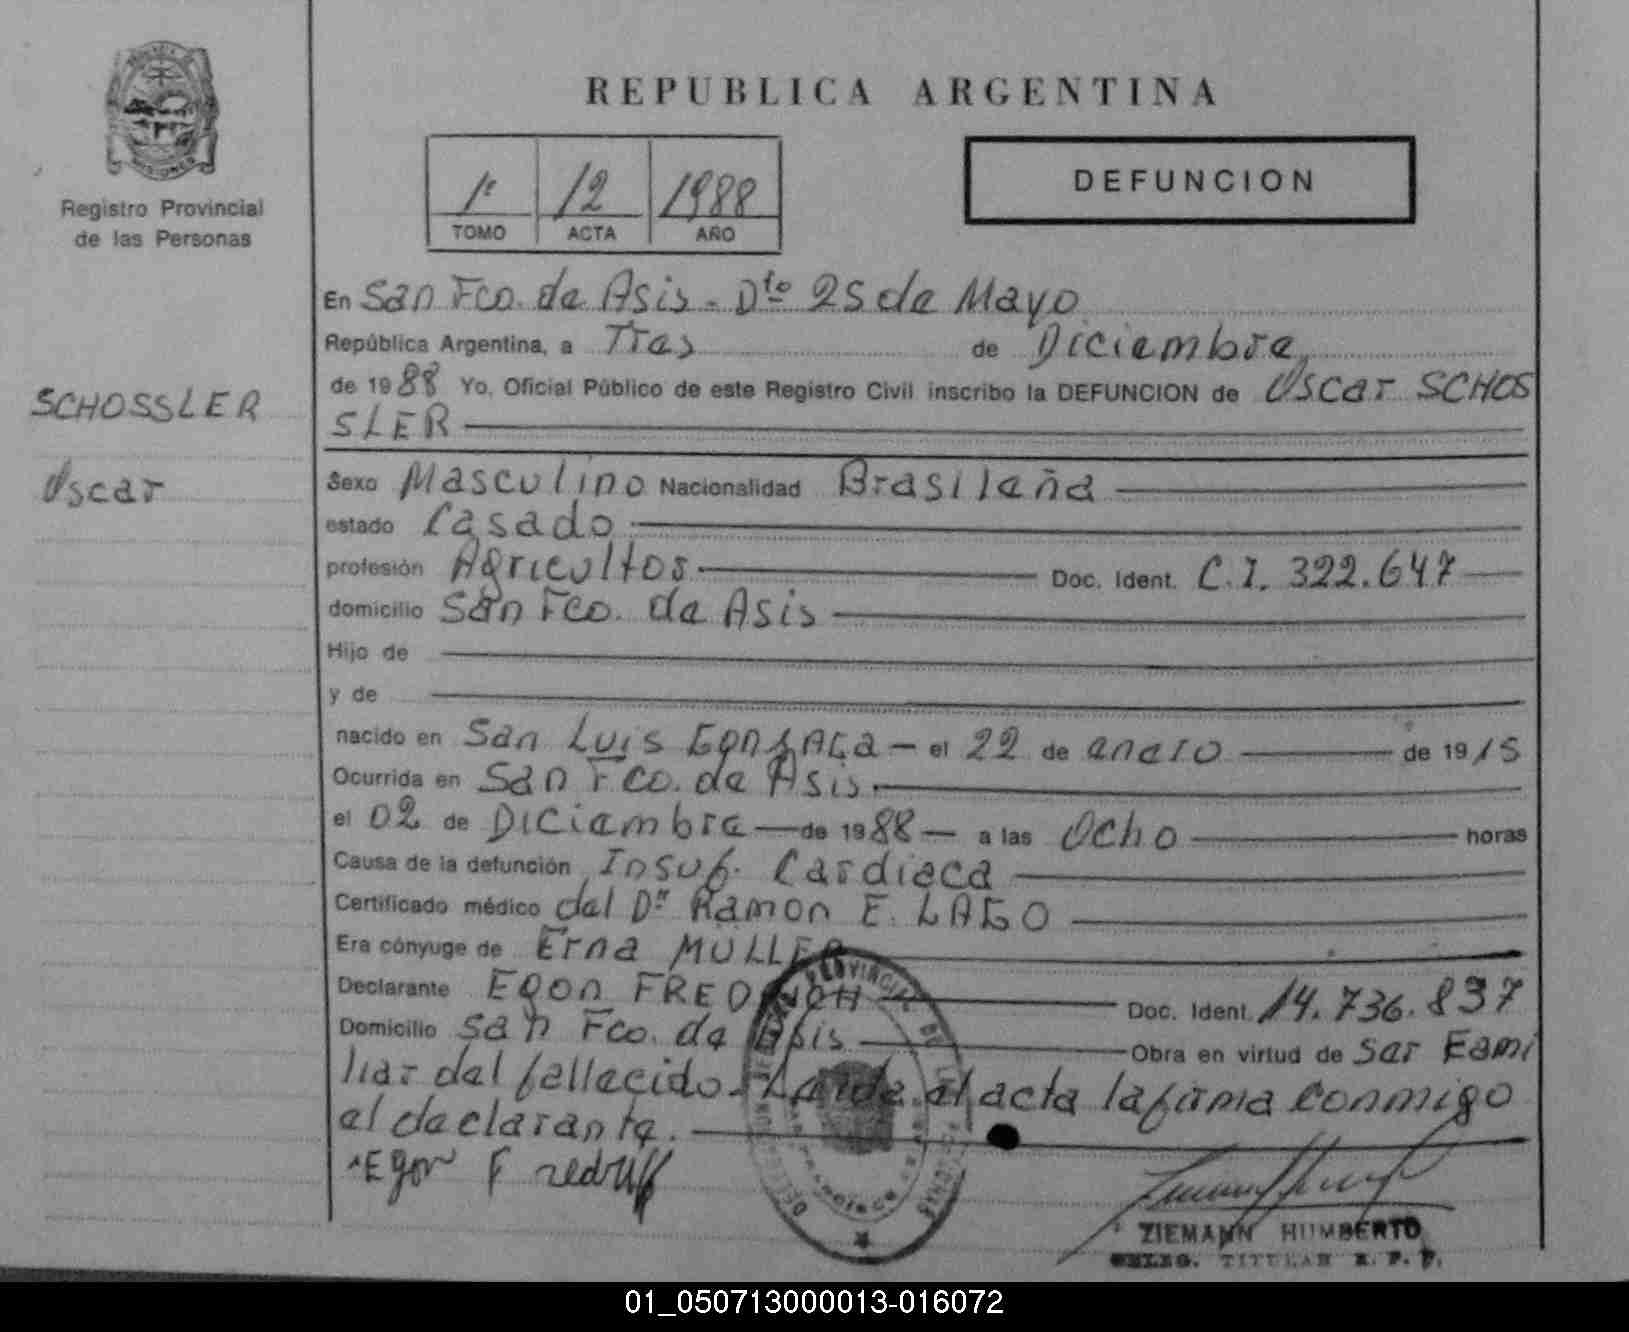 REPUBLICA ARGENTINA
MISIONES
Registro Provincial
de las Personas
1º 12 1988
TOMO ACTA AÑO
DEFUNCION
En San Fco. de Asis - Dto 25 de Mayo
República Argentina, a Tres de Diciembre
de 1988 Yo, Oficial Público de este Registro Civil inscribo la DEFUNCION de Oscar SCHOS
SLER
SCHOSSLER
Oscar
Sexo Masculino Nacionalidad Brasileña
estado Casado
profesión Agricultor Doc. Ident. C.I. 322.647
domicilio San Fco. de Asis
Hijo de
y de
nacido en San Luis GonzAGa - el 22 de enero de 1915
Ocurrida en San Fco. de Asis
el 02 de Diciembre - de 1988 - a las Ocho horas
Causa de la defunción Insuf. Cardiaca
Certificado médico del Dr Ramon E. LAGO
Era cónyuge de Erna MULLER
Declarante Egon FREDRICH Doc. Ident. 14.736.837
Domicilio San Fco. de Asis Obra en virtud de ser Fami
liar del fallecido. Leida el acta la firma conmigo
el declarante.
Egon Fredrich
ZIEMANN HUMBERTO
DELEG. TITULAR R. P. P.
01_050713000013-016072